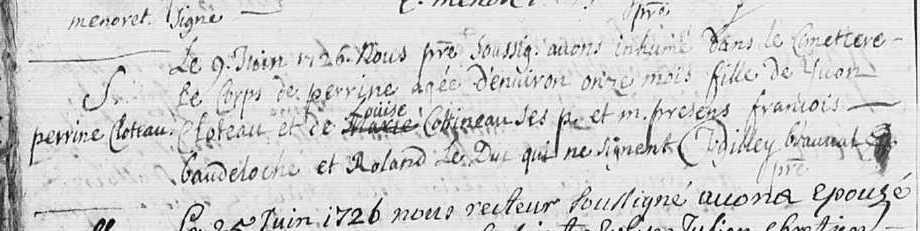 menoret. signe
pre
Le 9. Juin 1726. Nous pre soussig. avons inhumé dans le Cimettere
S
le Corps de perrine agée d'environ onze mois fille de yvon
perrine Cloteau. Cloteau et de Marie Louise Cottineau ses p. et m. presens francois
baudeloche et Roland Le Duc qui ne signent
pre
Le 25 Juin 1726 nous recteur soussigné avons epouzé